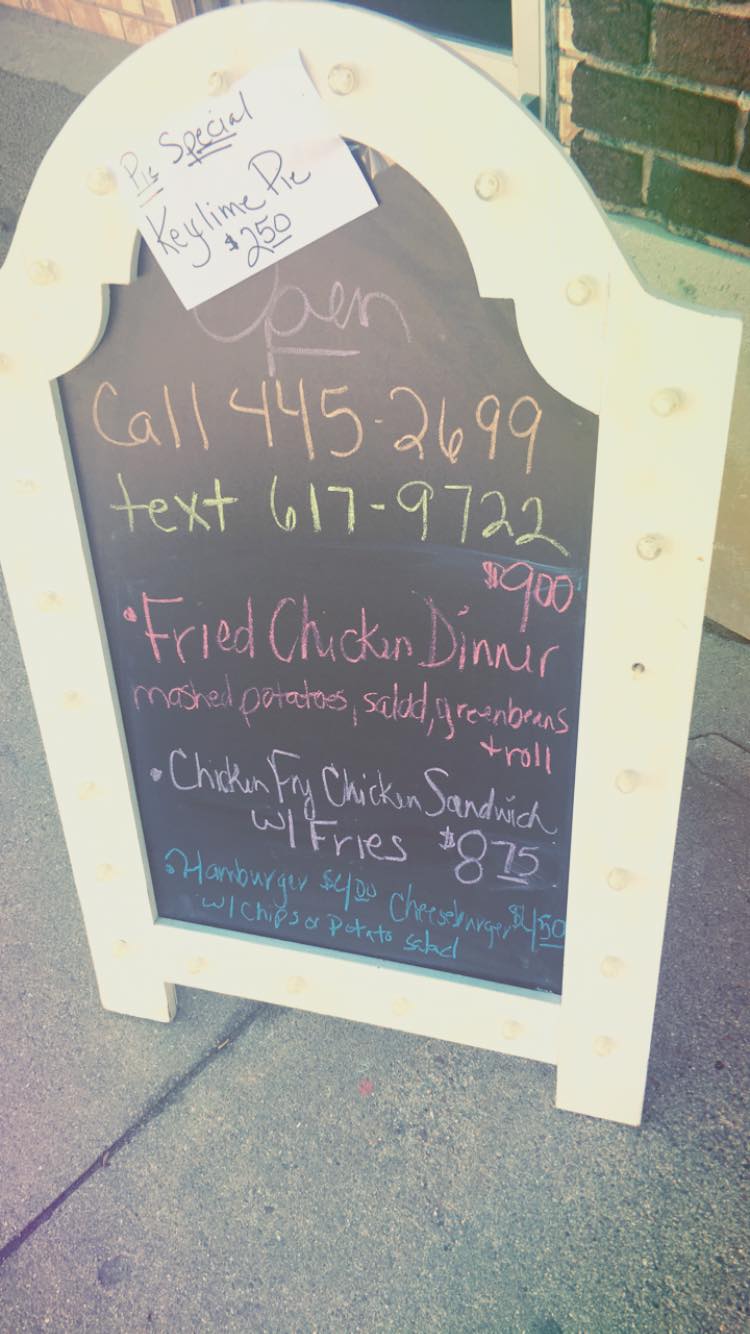 Pie Special
Keylime Pie
$2.50
Open
Call 445-2699
text 617-9722
$9.00
• Fried Chicken Dinner
mashed potatoes, salad, greenbeans
+ roll
• Chicken Fry Chicken Sandwich
w/ Fries $8.75
• Hamburger $4.00 Cheeseburger $4.50
w/ Chips or Potato salad